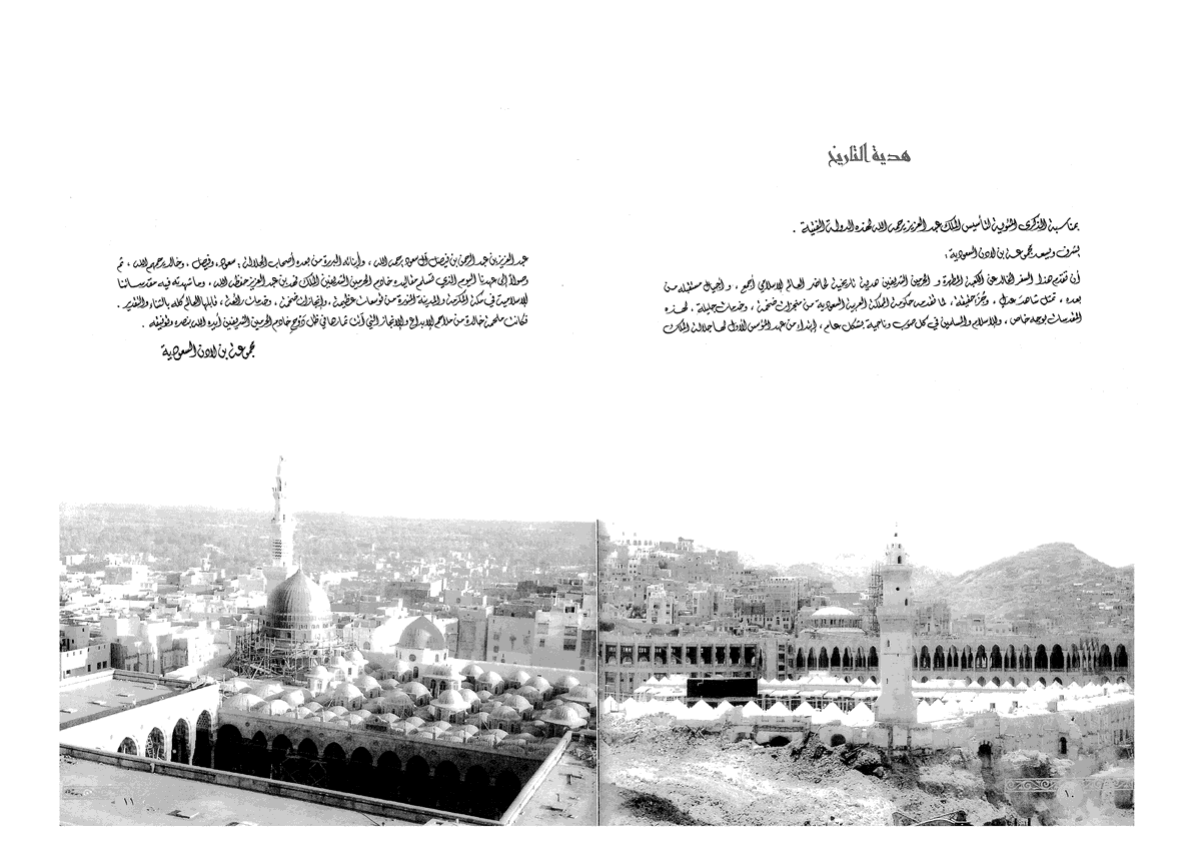 هدية التاريخ
بمناسبة الذكرى المئوية لتأسيس الملك عبد العزيز يرحمه الله لهذه الدولة الفتية .
يشرف ويسعد مجموعة بن لادن السعودية،
أن تقدم هذا السفر الخالد عن الكعبة المطهرة و الحرمين الشريفين هدية تاريخية لحاضر العالم الإسلامي أجمع ، و أجيال مستقبله من
بعده ، تمثل شاهد عدل ، لما تقدمه حكومة المملكة العربية السعودية من منجزات ضخمة ، وخدمات جليلة ، لهذه
المقدسات بوجه خاص ، وللإسلام والمسلمين في كل صوب وناحية بشكل عام ، إبتداء من عهد المؤسس الأول لها جلالة الملك
عبد العزيز بن عبد الرحمن بن فيصل آل سعود يرحمه الله ، وأبنائه البررة من بعده أصحاب الجلالة : سعود، وفيصل ، وخالد يرحمهم الله ، ثم
وصولاً إلى عهدنا اليوم الذي تسلم مقاليده خادم الحرمين الشريفين الملك فهد بن عبد العزيز حفظه الله ، وما شهدته فيه مقدساتنا
الإسلامية في مكة المكرمة و المدينة المنورة من توسعات عظيمة ، وإنجازات ضخمة ، وخدمات ، قابلها العالم كله بالثناء والتقدير .
فكانت ملحمة خالدة من ملاحم الإبداع و الإنجاز التي تمت في ظل خادم الحرمين الشريفين أيده الله بنصره وتوفيقه .
مجموعة بن لادن السعودية
١٠
١١